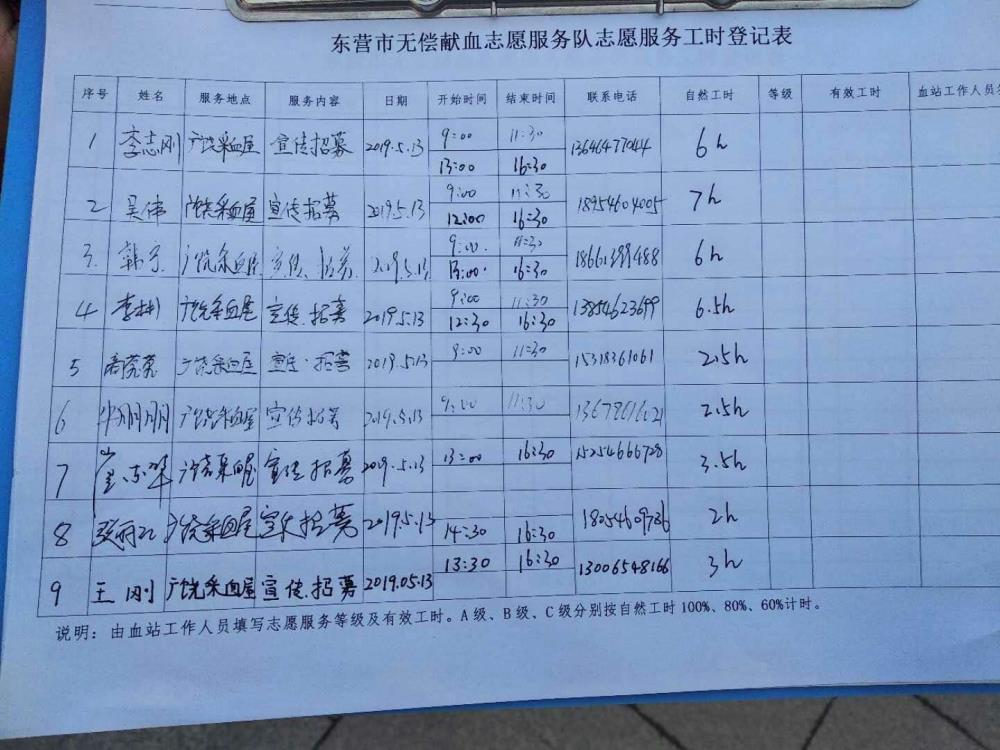 东营市无偿献血志愿服务队志愿服务工时登记表
序号 姓名 服务地点 服务内容 日期 开始时间 结束时间 联系电话 自然工时 等级 有效工时 血站工作人员
1 李志刚 广饶采血屋 宣传招募 2019.5.13 9:00 11:30 13646477044 6h
13:00 16:30
2 吴伟 广饶采血屋 宣传招募 2019.5.13 9:00 11:30 18954604005 7h
12:00 16:30
3. 韩宁 广饶采血屋 宣传、招募. 2019.5.13 9:00. 11:30 6h
13:00. 16:30
4 李彬 广饶采血屋 宣传.招募 2019.5.13 9:00 11:30 13854623699 6.5h
12:30 16:30
5 广饶采血屋 宣传·招募 2019.5.13 9:00 11:30 15318361061 2.5h
6 广饶采血屋 宣传招募 2019.5.13 9:00 11:30 2.5h
7 广饶采血屋 宣传招募 2019.5.13 13:00 16:30 15254666728 3.5h
8 广饶采血屋 宣传招募 2019.5.13 14:30 16:30 18054609786 2h
9 王刚 广饶采血屋 宣传.招募 2019.05.13 13:30 16:30 13006548166 3h
说明：由血站工作人员填写志愿服务等级及有效工时。A级、B级、C级分别按自然工时100%、80%、60%计时。